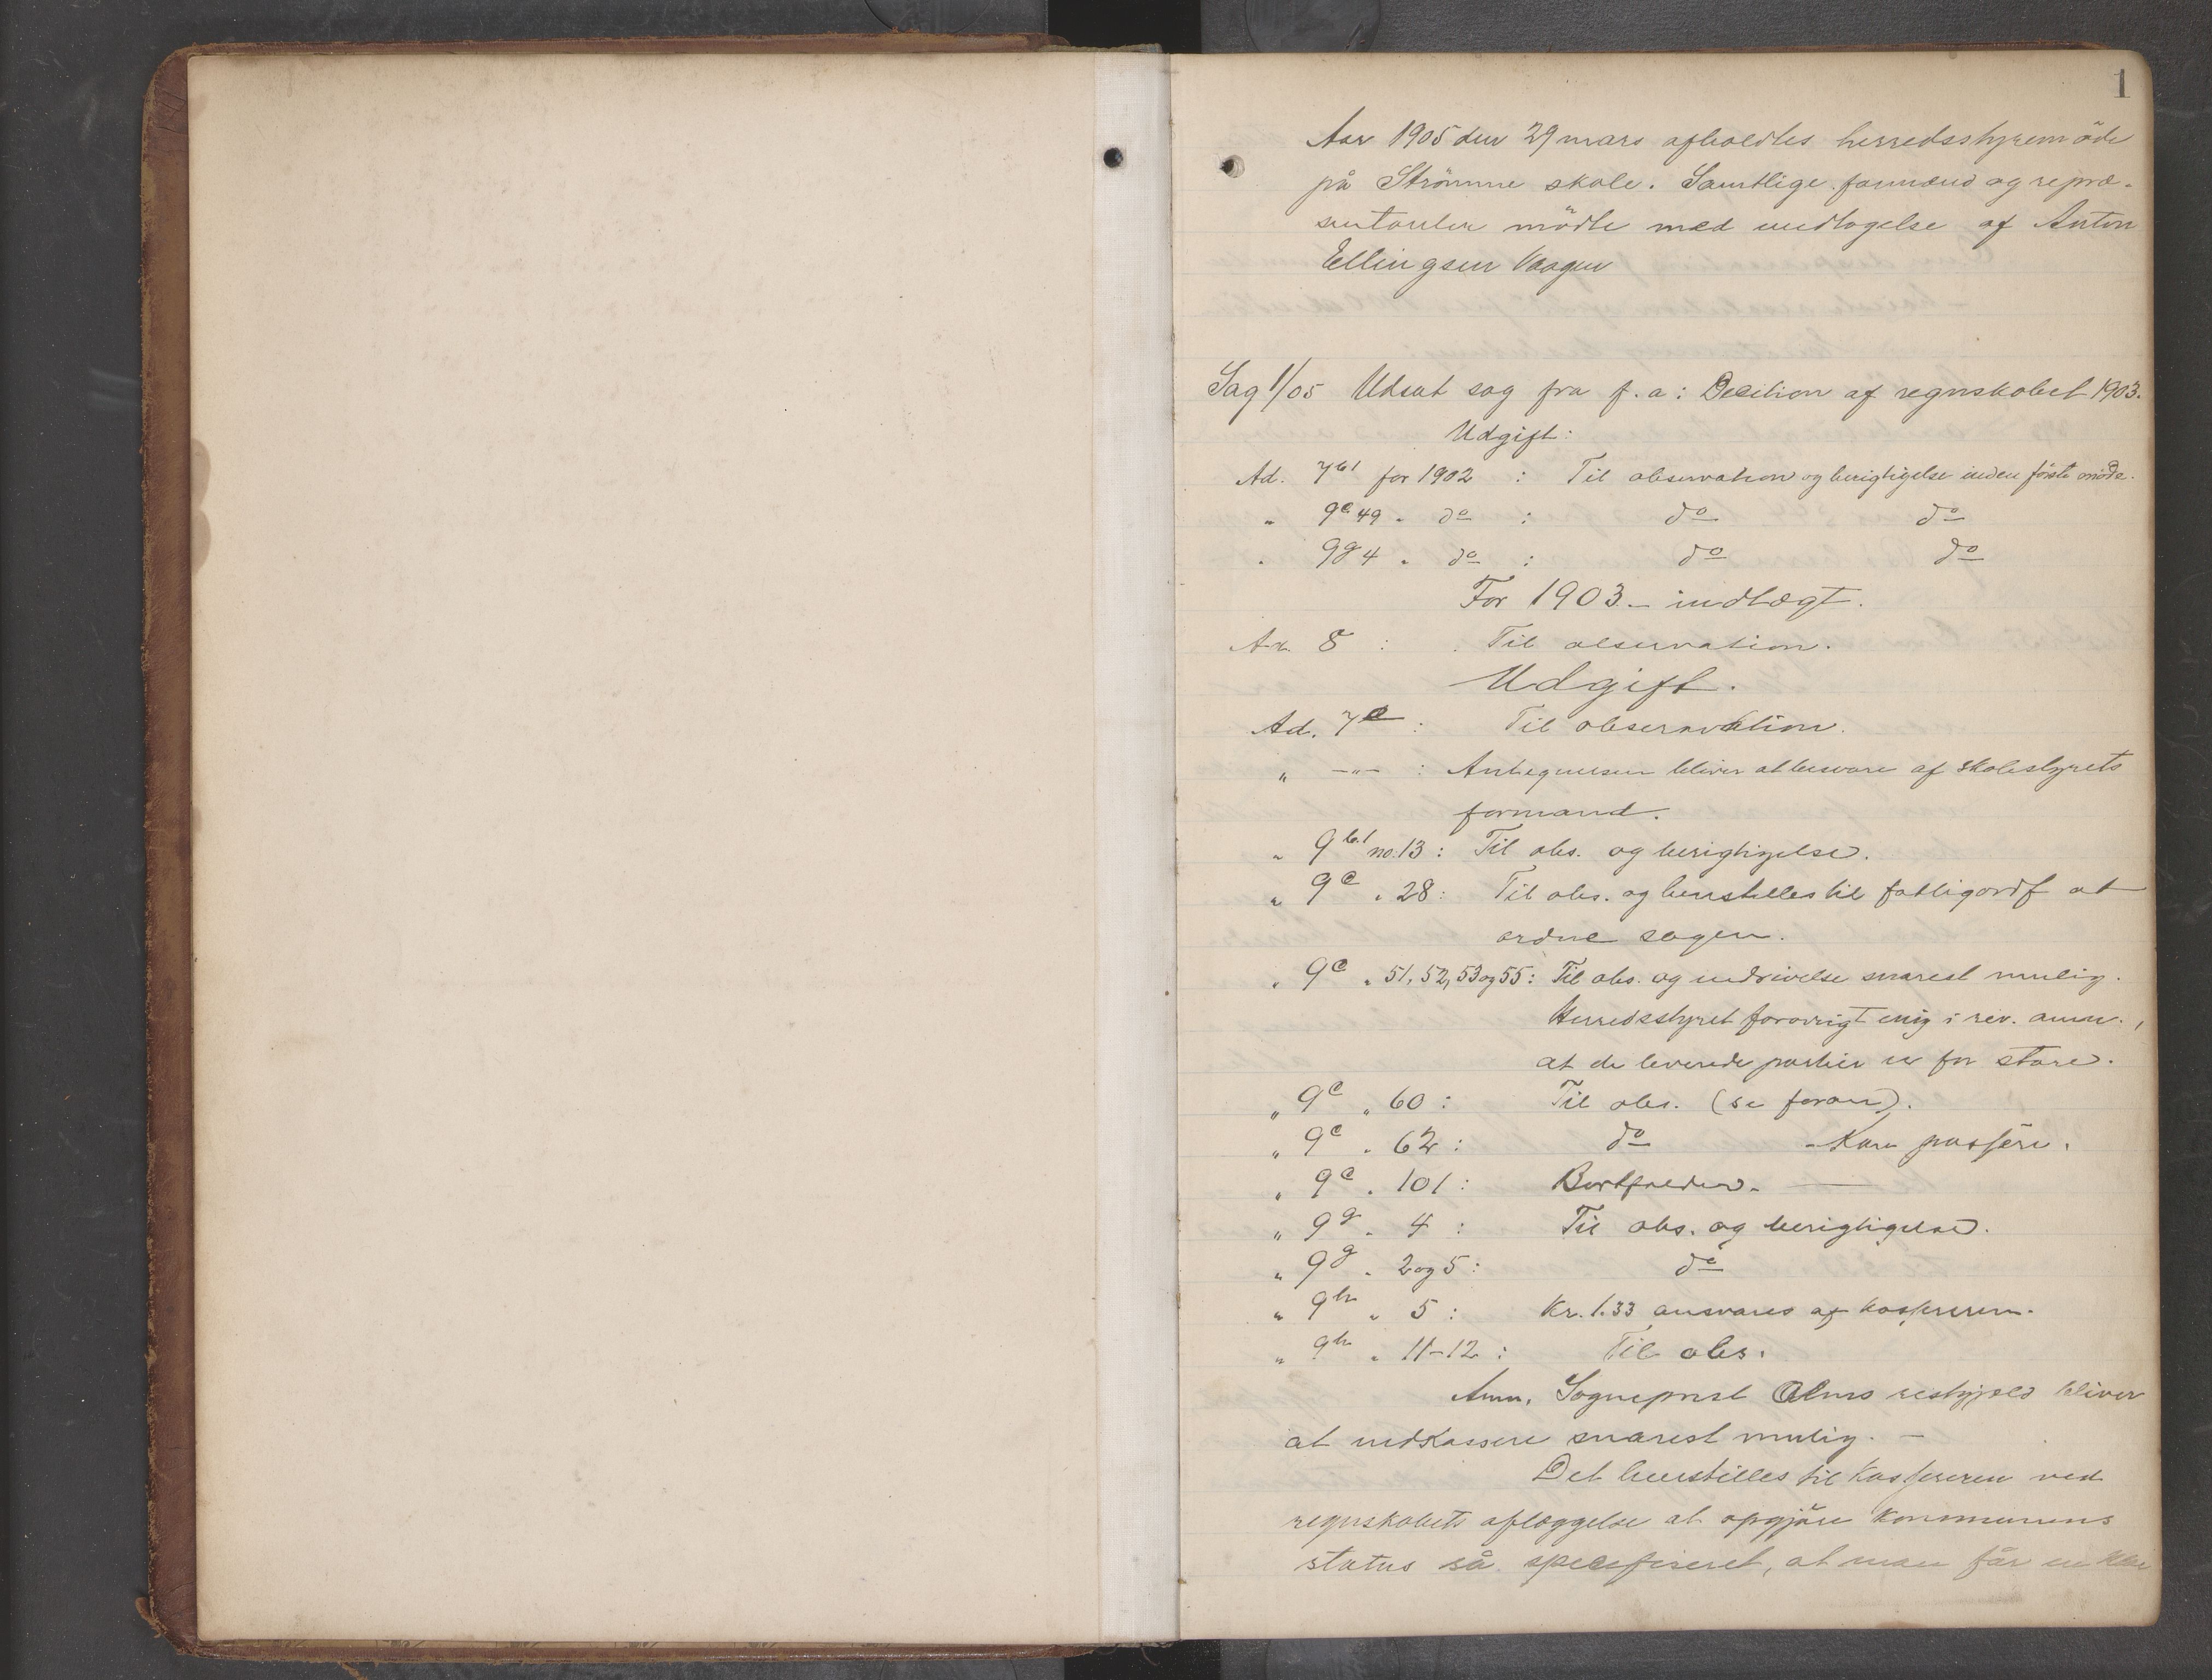 1
Aar 1905 den 29 mars afholdtes herredsstyremöde
på Strömme skole. Samtlige formænd og repræ-
sentanter mödte med undtagelse af Anton
Ellingsen Vaagen
Sag 1/05 Udsat sag fra f. a: Decition af regnskabet 1903.
Udgift:
Ad. 7b1 for 1902 : Til observation og berigtigelse inden förste möde.
" 9c 49 " do : do do
" 9g 4 " do : do do
For 1903 - indtægt.
Ad. 8 : Til observation.
Udgift.
Ad. 7e : Til observation.
" -"- : Antegnelsen bliver at besvare af skolestyrets
formand.
" 9b1 no. 13 : Til obs. og berigtigelse.
" 9c " 28 : Til obs. og henstilles til fattigordf at
ordne sagen.
" 9c " 51, 52, 53 og 55 : Til obs. og inddrivelse snarest mulig.
Herredsstyret forövrigt enig i rev. anm.,
at de leverede partier er for store.
" 9c " 60 : Til obs. (se foran).
" 9c " 62 : do - Kan passere.
" 9c " 101 : Bortfalder. -
" 9g " 4 : Til obs. og berigtigelse.
" 9g " 2 og 5 : do
" 9h " 5 : Kr. 1.33 ansvares af kassereren.
" 9h " 11-12 : Til obs.
Anm. Sogneprest Alms restgjæld bliver
at indkassere snarest mulig. -
Det henstilles til Kassereren ved
regnskabets aflæggelse at opgjöre Kommunens
status så specefiseret, at man får en klar